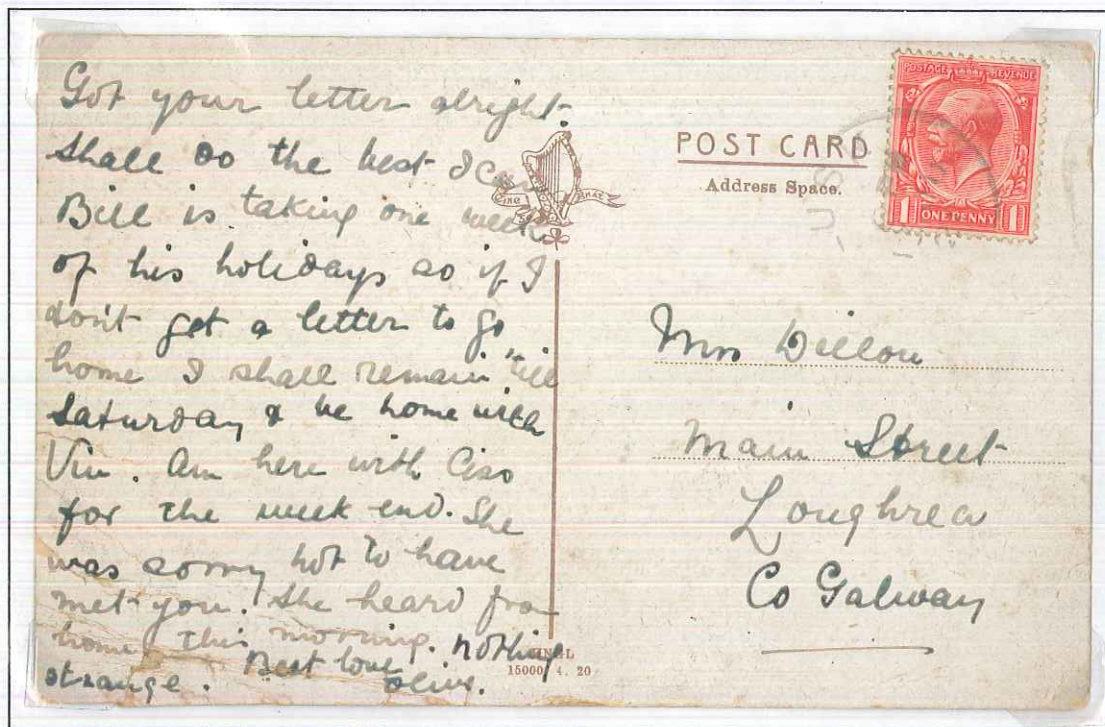 Got your letter alright.
Shall do the best I can
Bill is taking one week
of his holidays so if I
don't get a letter to go
home I shall remain 'till
Saturday & be home with
Vin. Am here with Ciss
for the week end. She
was sorry not to have
met you. She heard from
home this morning. nothing
strange. Best love
POST CARD
Address Space.
POSTAGE REVENUE
1 ONE PENNY 1
Mrs Dillon
Main Street
Loughrea
Co Galway
15000 4. 20